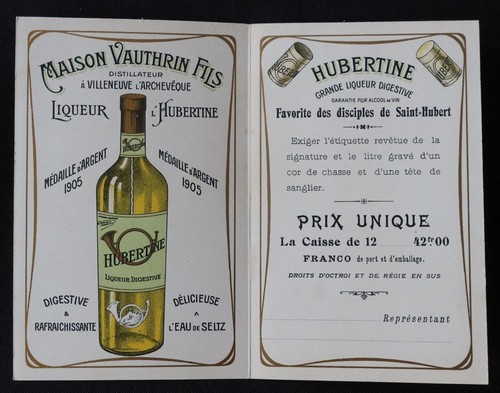 MAISON VAUTHRIN FILS
DISTILLATEUR
À VILLENEUVE L'ARCHEVÊQUE
LIQUEUR L'HUBERTINE
MÉDAILLE D'ARGENT
1905
MÉDAILLE D'ARGENT
1905
HUBERTINE
LIQUEUR DIGESTIVE
DIGESTIVE
&
RAFRAICHISSANTE
DÉLICIEUSE
A
L'EAU DE SELTZ
HUBERTINE
GRANDE LIQUEUR DIGESTIVE
GARANTIE PUR ALCOOL DE VIN
Favorite des disciples de Saint-Hubert
Exiger l'étiquette revêtue de la
signature et le litre gravé d'un
cor de chasse et d'une tête de
sanglier.
PRIX UNIQUE
La Caisse de 12 42fr00
FRANCO de port et d'emballage.
DROITS D'OCTROI ET DE RÉGIE EN SUS
Représentant